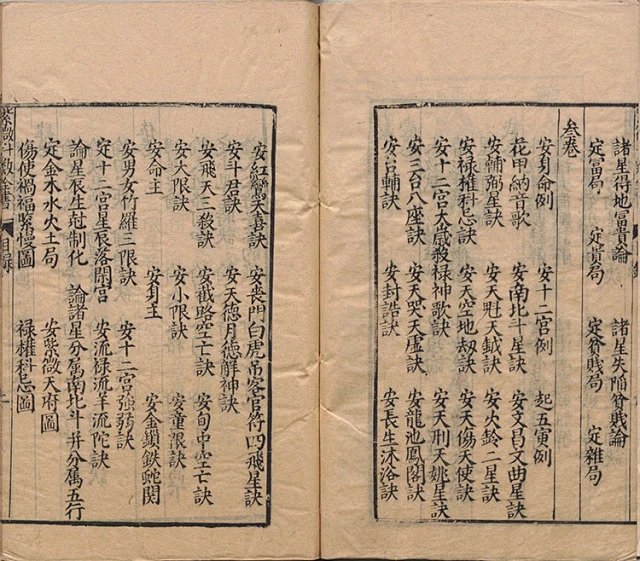 諸星得地富貴論 諸星失陷貧賤論
定富局 定貴局 定貧賤局 定雜局
叁卷
安身命例 安十二宮例 起五寅例
花甲納音歌 安南北斗星訣 安文昌文曲星訣
安輔弼星訣 安天魁天鉞訣 安火鈴二星訣
安禄權科忌訣 安天空地刼訣 安天傷天使訣
安十二宮太歲殺禄神歌訣 安天刑天姚星訣
安三台八座訣 安天哭天虛訣 安龍池鳳閣訣
安台輔訣 安封誥訣 安長生沐浴訣
安紅鸞天喜訣 安喪門白虎吊客官符四飛星訣
安斗君訣 安天德月德解神訣
安飛天三殺訣 安截路空亡訣 安旬中空亡訣
安大限訣 安小限訣 安童限訣
安命主 安身主 安金鎖鉄蛇関
安男女竹羅三限訣 安十二宮強弱訣
定十二宮星辰落閒宮 安流禄流羊流陀訣
論星辰生尅制化 論諸星分属南北斗并分属五行
定金木水火土局 安紫微天府圖
傷使禍福緊慢圖 禄權科忌圖
紫微斗數全書 目録